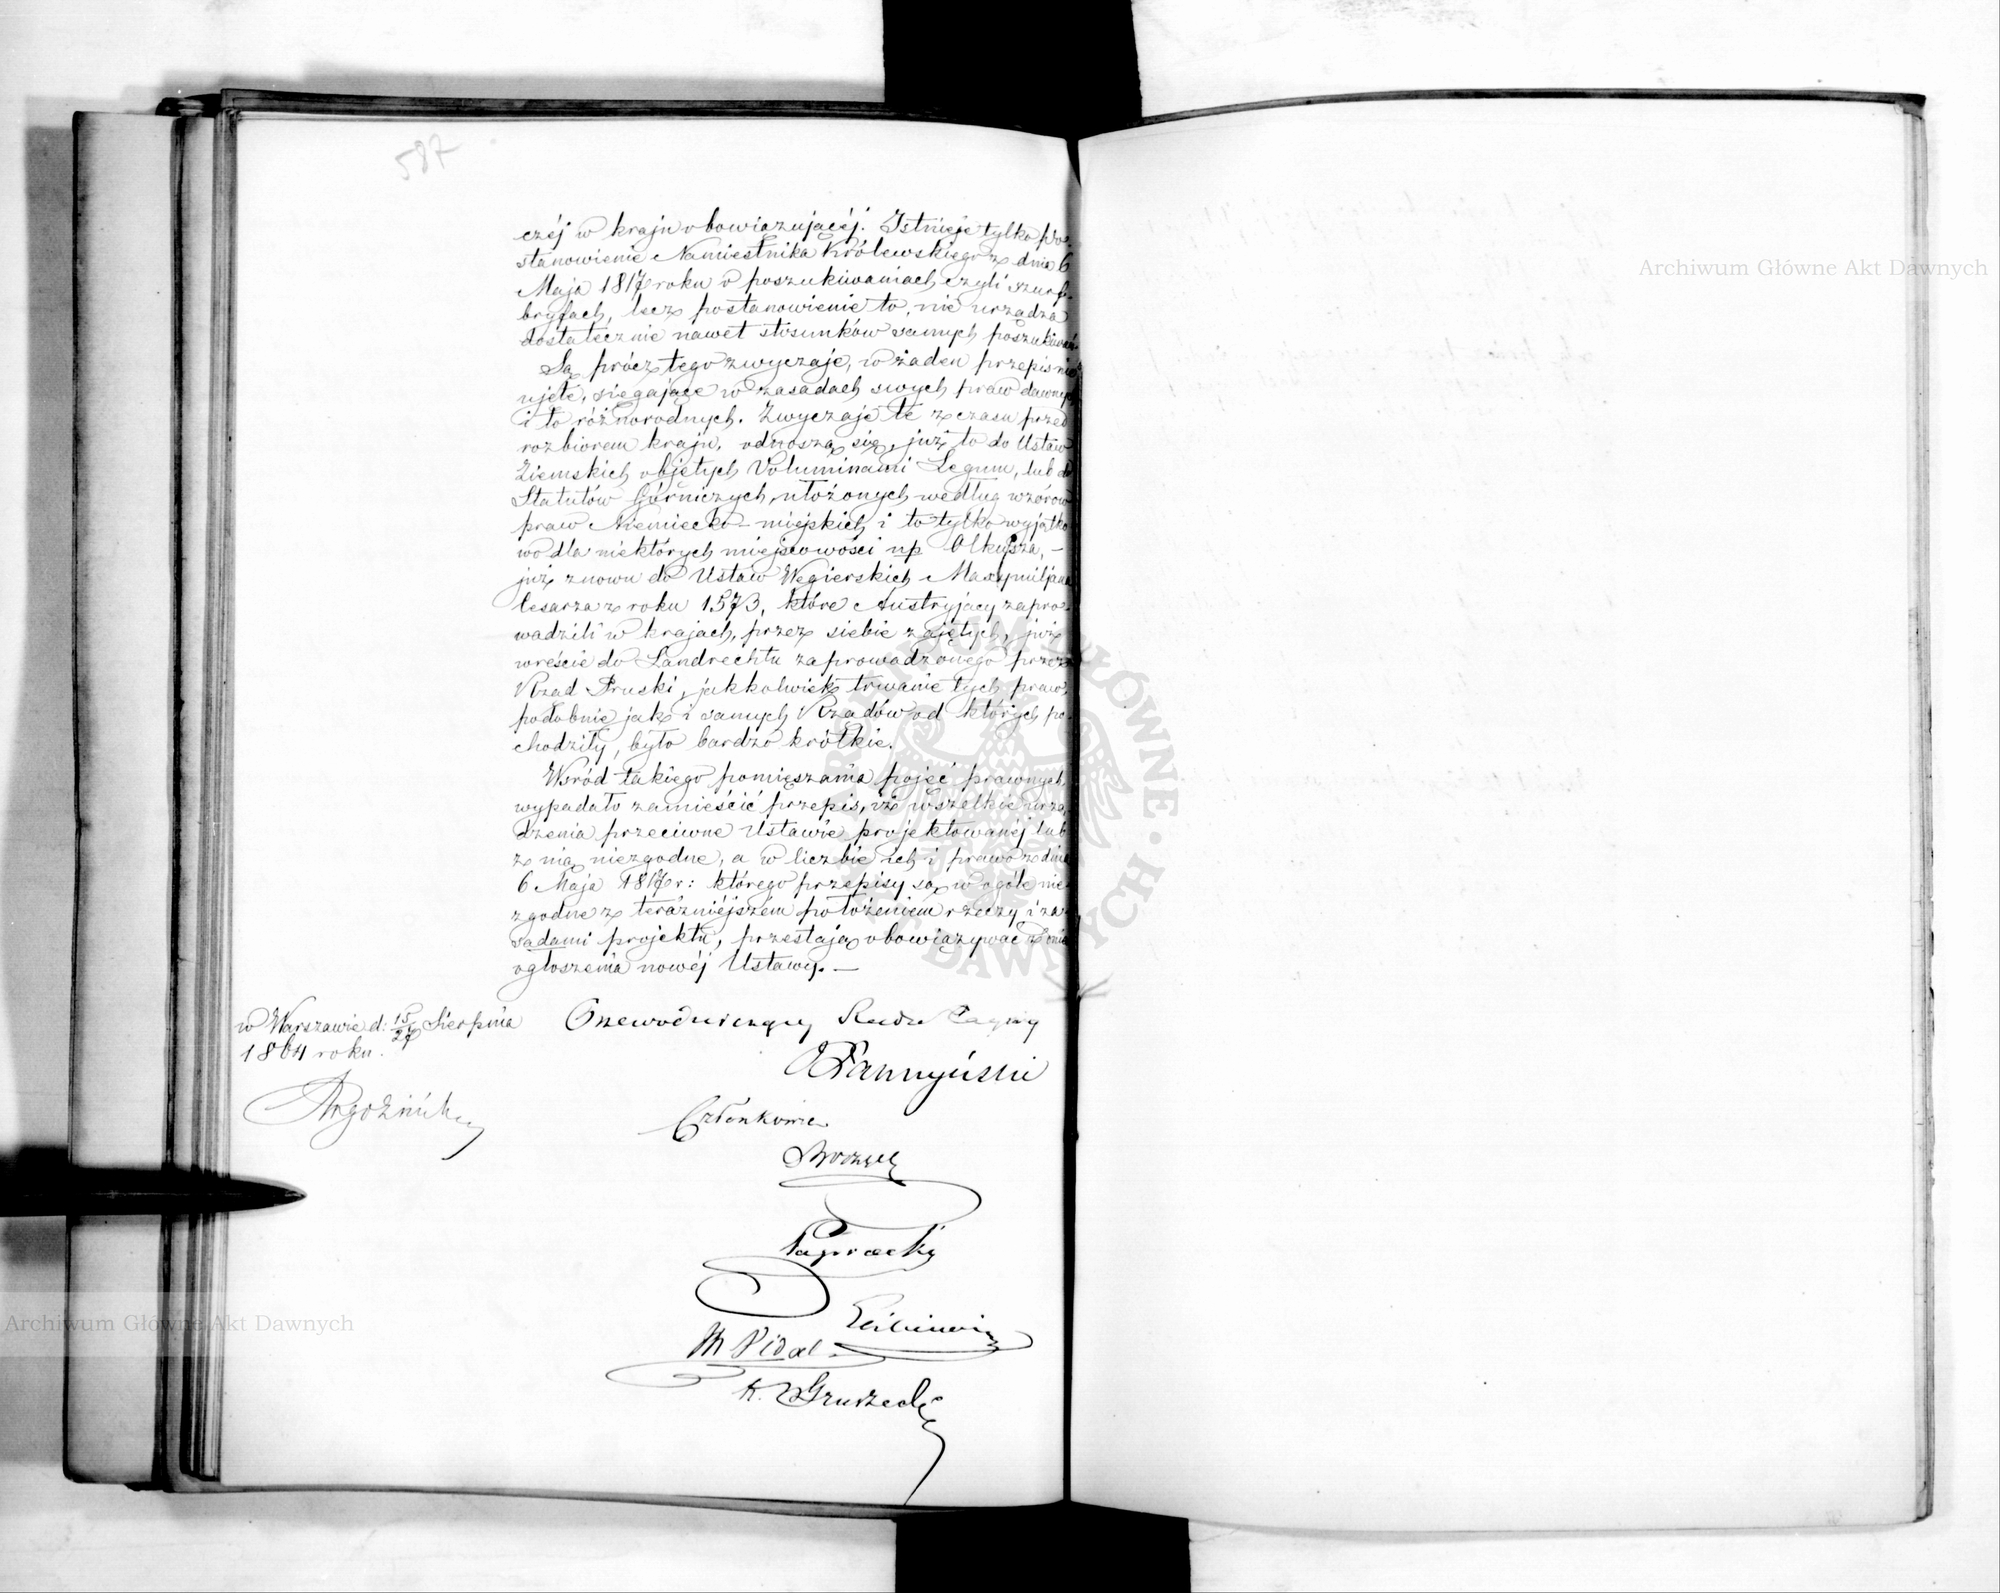 587
czéj w kraju obowiązującéj. Istnieje tylko po-
stanowienie Namiestnika Królewskiego z dnia 6
Maja 1817 roku o poszukiwaniach czyli szurf-
bryfach, lecz postanowienie to, nie urządza
dostatecznie nawet stosunków samych poszukiwań.
Są prócz tego zwyczaje, w żaden przepis nie
ujęte, sięgające w zasadach swych praw dawnych
i to różnorodnych. Zwyczaje te z czasu przed
rozbiorem kraju, odnoszą się, już to do Ustaw
Ziemskich objętych Voluminami Legum, lub do
Statutów Górniczych, ułożonych według wzorów
praw Niemiecko-miejskich i to tylko wyjątko
wo dla niektórych miejscowości np Olkusza, —
już znowu do Ustaw Węgierskich Maxymiljana
Cesarza z roku 1573, które Austryjacy zapro-
wadzili w krajach, przez siebie zajętych, już
wreście do Landrechtu zaprowadzonego przez
Rząd Pruski, jakkolwiek trwanie tych praw,
podobnie jak i samych Rządów od których po-
chodziły, było bardzo krótkie.
Wśród takiego pomięszania pojęć prawnych,
wypadało zamieścić przepis, iż wszelkie urzą-
dzenia przeciwne Ustawie projektowanéj lub
z nią niezgodne, a w liczbie ich i prawo z dnia
6 Maja 1817 r: którego przepisy są w ogóle nie-
zgodne z teraźniejszém położeniem rzeczy i za-
sadami projektu, przestają obowiązywać z dnia
ogłoszenia nowéj Ustawy. —
w Warszawie d: 15/27 Sierpnia
1864 roku.
Przewodniczący Radca Tajny
Członkowie
Paprocki
M Vidal
K. Gruszecki
Archiwum Główne Akt Dawnych
Archiwum Główne Akt Dawnych